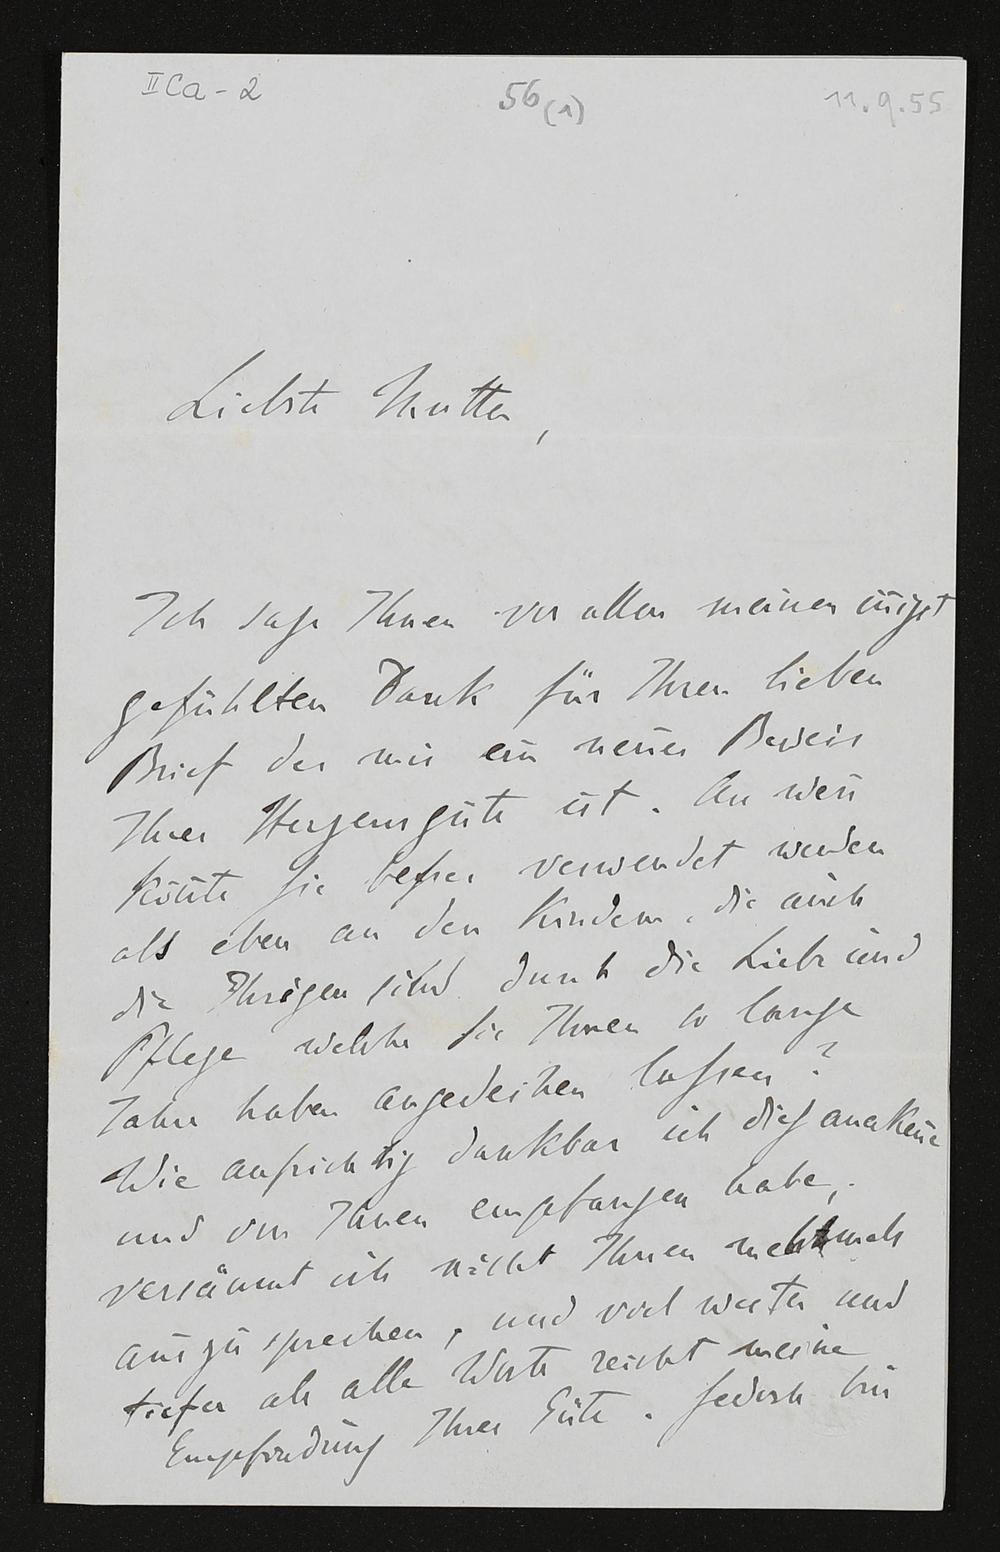 II Ca - 2
56 (1)
11.9.55
Liebste Mutter,
Ich sage Ihnen vor allem meinen innigst
gefühlten Dank für Ihren lieben
Brief der mir ein neuer Beweis
Ihrer Herzensgüte ist. An wen
könnte sie besser verwendet werden
als eben an den Kindern, die auch
die Ihrigen sind durch die Liebe und
Pflege welche Sie Ihnen so lange
Jahre haben angedeihen lassen?
Wie aufrichtig dankbar ich dieß anerkenne
und von Ihnen empfangen habe,
versäumt ich nicht Ihnen mehrmals
auszusprechen, und viel weiter und
tiefer als alle Worte reicht meine
Empfindung Ihrer Güte. Jedoch bin